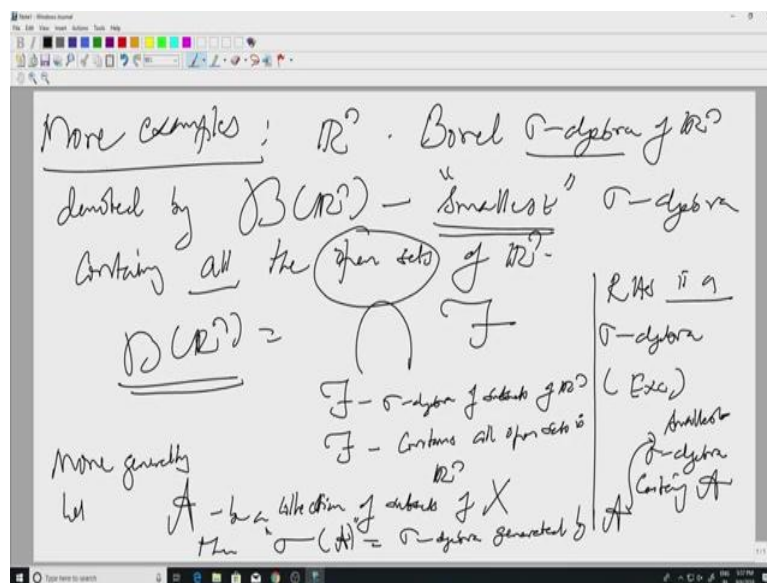 Note1 - Windows Journal
File Edit View Insert Actions Tools Help
More examples : ℝⁿ . Borel σ-algebra of ℝⁿ
denoted by B(ℝⁿ) – "Smallest" σ-algebra
Containing all the open sets of ℝⁿ.
B(ℝⁿ) = ⋂ F
F - σ-algebra of subsets of ℝⁿ
F - Contains all open sets in ℝⁿ
RHS is a
σ-algebra
(Exc.)
More generally
let A - be a collection of subsets of X
then "σ(A)" = σ-algebra generated by A
Smallest
σ-algebra
Containing A
Type here to search
ENG 5:07 PM
1/1